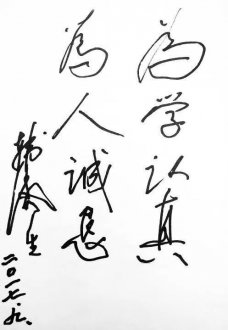 为学认真
为人诚恳
二〇一七.九.